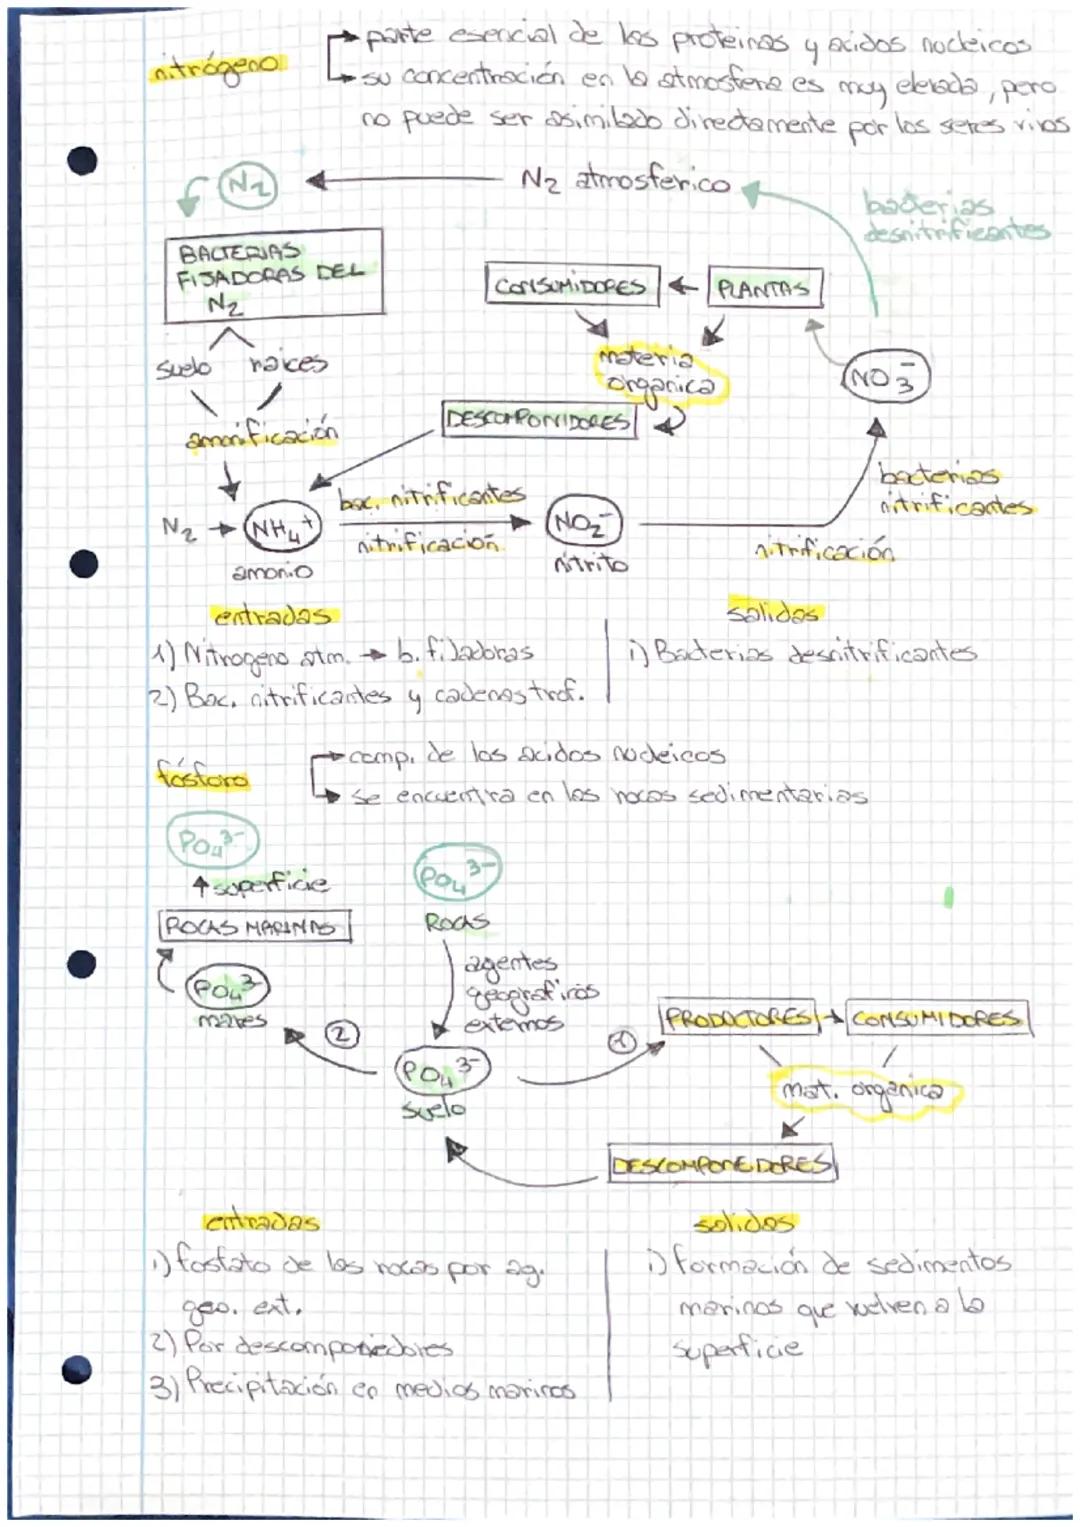 nitrógeno
parte esencial de las proteinas y acidos nucleicos
su concentración en la atmosfera es muy elevada, pero
no puede ser asimilado directamente por los seres vivos
N2
N2 atmosferico
bacterias
desnitrificantes
BACTERIAS
FIJADORAS DEL
N2
CONSUMIDORES
PLANTAS
suelo raices
materia
organica
NO3-
DESCOMPONIDORES
amonificación
bac. nitrificantes
bacterias
nitrificantes
N2
NH4+
NO2-
nitrificación
nitrificación
amonio
nitrito
entradas
salidas
1) Nitrogeno atm. → b. fijadoras
1) Bacterias desnitrificantes
2) Bac. nitrificantes y cadenas trof.
fósforo
comp. de los acidos nucleicos
se encuentra en las rocas sedimentarias
PO4 3-
superficie
PO4 3-
ROCAS MARINAS
ROCAS
PO4 3-
mares
agentes
geograficos
externos
2
1
PRODUCTORES
CONSUMIDORES
PO4 3-
suelo
mat. organica
DESCOMPONEDORES
entradas
salidas
1) fosfato de las rocas por ag.
geo. ext.
2) Por descomponedores
3) Precipitación en medios marinos
1) formación de sedimentos
marinos que vuelven a la
superficie